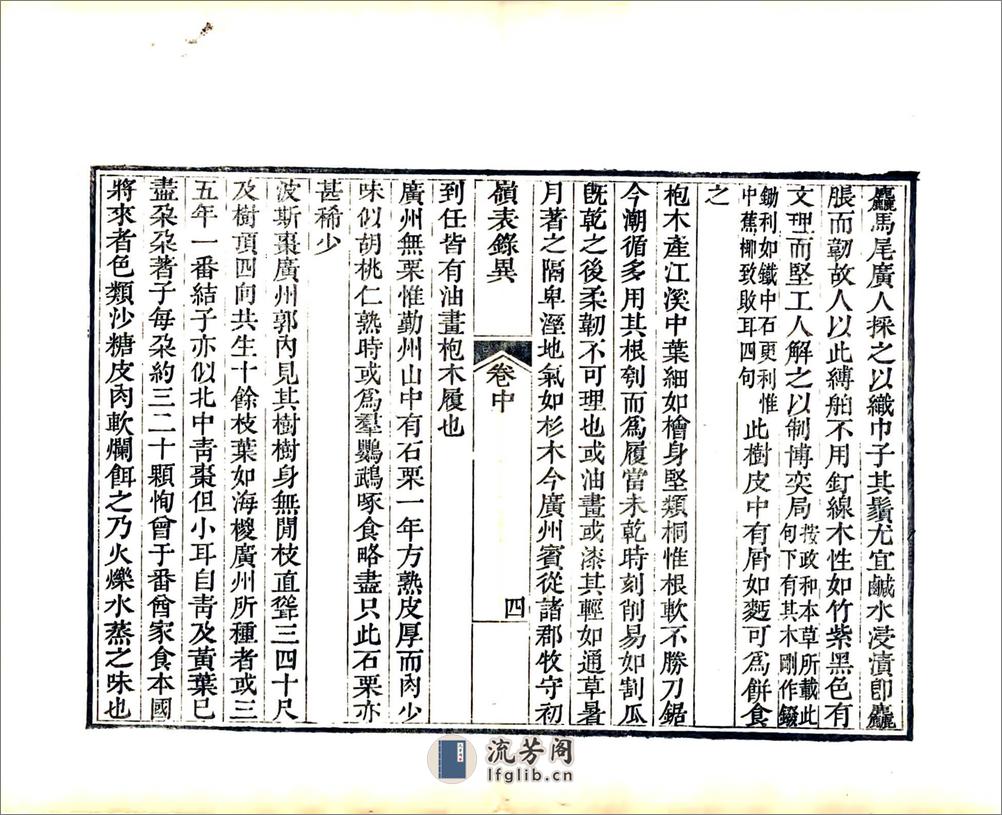 麤馬尾廣人採之以織巾子其鬚尤宜鹹水浸漬卽麤
脹而韌故人以此縛舶不用釘線木性如竹紫黑色有
文理而堅工人解之以制博奕局按政和本草所載此句下有其木剛作鎩
鋤利如鐵中石更利惟中蕉椰致敗耳四句此樹皮中有屑如麪可爲餠食
之
枹木產江溪中葉細如檜身堅類桐惟根軟不勝刀鋸
今潮循多用其根刳而爲履當未乾時刻削易如割瓜
旣乾之後柔韌不可理也或油畫或漆其輕如通草暑
月著之隔卑溼地氣如杉木今廣州賓從諸郡牧守初
嶺表錄異
卷中
四
到任皆有油畫枹木履也
廣州無栗惟勤州山中有石栗一年方熟皮厚而肉少
味似胡桃仁熟時或爲羣鸚鵡啄食略盡只此石栗亦
甚稀少
波斯棗廣州郭內見其樹樹身無閒枝直聳三四十尺
及樹頂四向共生十餘枝葉如海椶廣州所種者或三
五年一番結子亦似北中靑棗但小耳自靑及黃葉已
盡朶朶著子每朶約三二十顆恂曾于番酋家食本國
將來者色類沙糖皮肉軟爛餌之乃火爍水蒸之味也
流芳阁
lfglib.cn